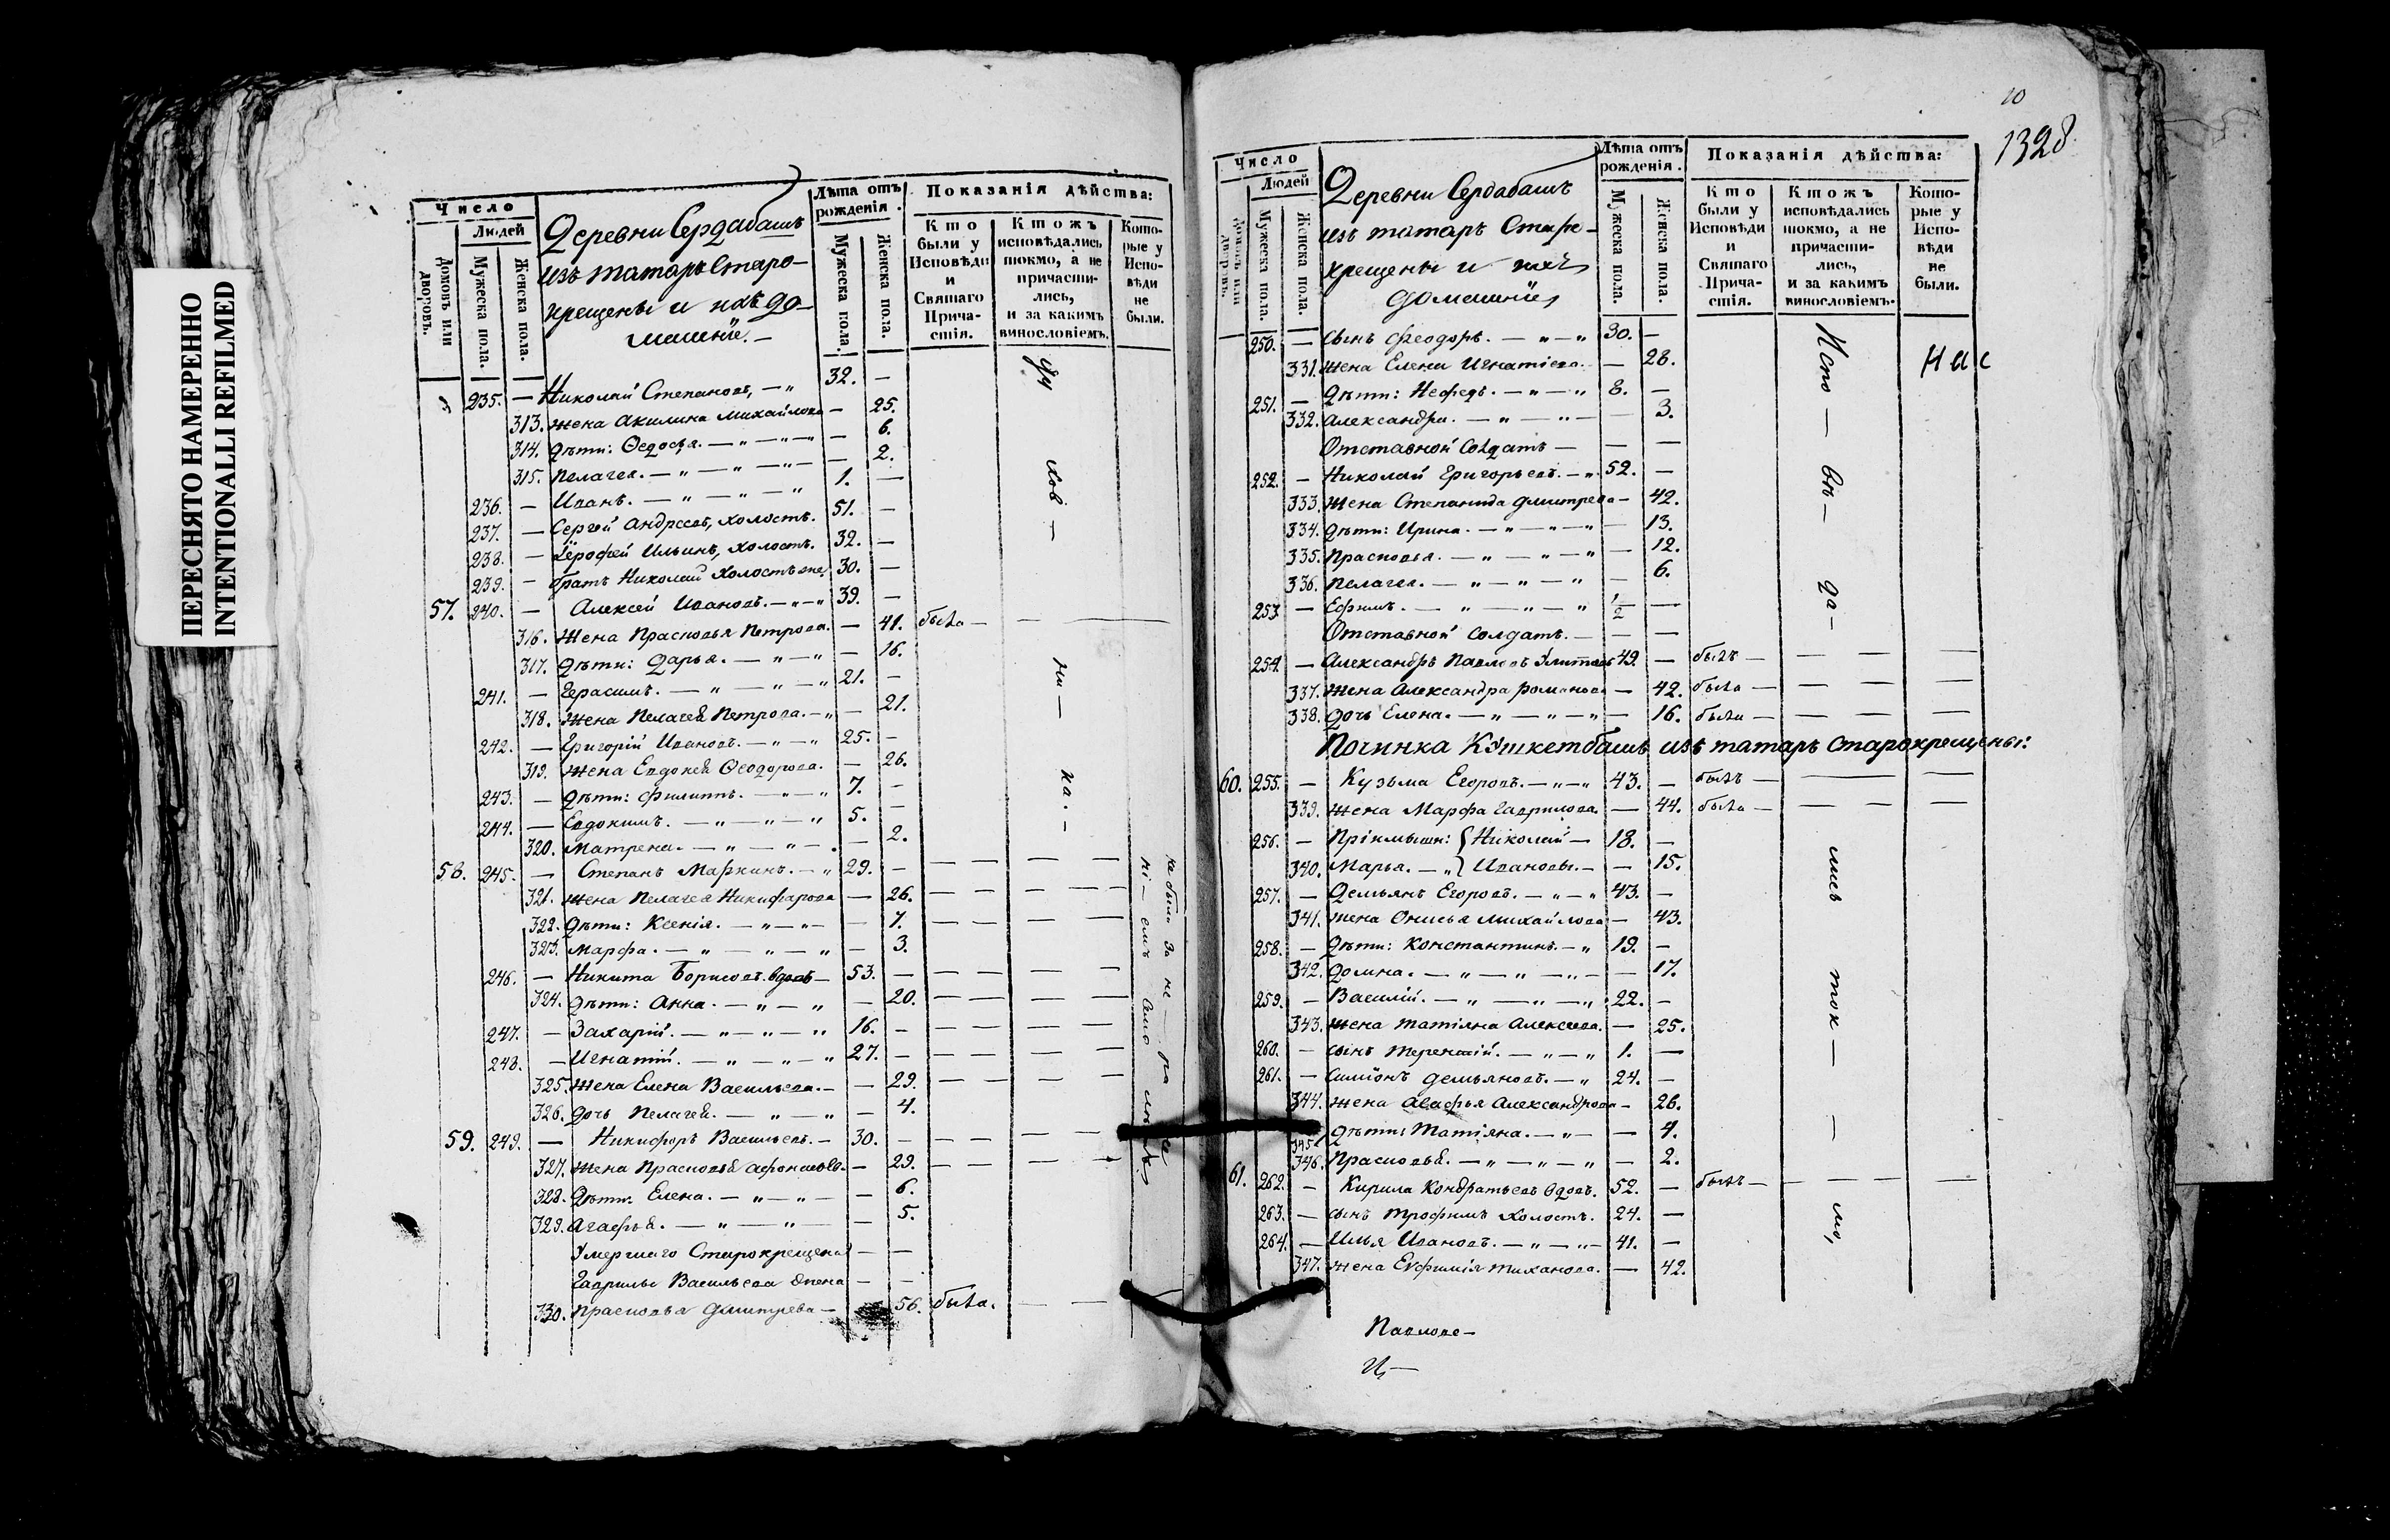 ПЕРЕСНЯТО НАМЕРЕННО
INTENTIONALLI REFILMED
Число
Людей
Домовъ или дворовъ.
Мужеска пола.
Женска пола.
Деревни Сердабашъ
изъ татаръ старо-
крещены и ихъ до-
машніе. —
Лѣта отъ рожденія.
Мужеска пола.
Женска пола.
Показанія дѣйства:
Кто были у Исповѣди и Святаго Причастія.
Ктожъ исповѣдались токмо, а не причастились, и за какимъ винословіемъ.
Которые у Исповѣди не были.
235. — Николай Степановъ, — „ 32. —
313. жена Акилина Михайлова — 25.
314. дѣти: Ѳедосья. — „ — „ — 6.
315. Пелагея. — „ — „ — — 2.
236. — Иванъ. — „ — „ — „ 1. —
237. — Сергѣй Андреевъ, холостъ. 51. —
238. — Ерофей Ильинъ, холостъ. 32. —
239. — братъ Николай холостъ же. 30. —
57. 240. — Алексей Ивановъ. — „ — „ 39. —
316. жена Прасковья Петрова. — 41. была —
317. дѣти: Дарья. — „ — „ — 16.
241. — Герасимъ. — „ — „ — „ 21. —
318. жена Пелагея Петрова. — „ — 21.
242. — Григорій Ивановъ. — „ — „ 25. —
319. жена Евдокея Ѳеодорова. — 26.
243. — дѣти: Филиппъ. — „ — „ 7. —
244. — Евдокимъ. — „ — „ — „ 5. —
320. Матрена. — „ — „ — . — 2.
58. 245. — Степанъ Маркинъ. — „ 29. —
321. жена Пелагея Никифарова — 26.
322. дѣти: Ксенія. — „ — „ — — 7.
323. Марфа. — „ — „ — „ — 3.
246. — Никита Борисовъ вдовъ — 53. —
324. дѣти: Анна. — „ — „ — 20.
247. — Захарій. — „ — „ — „ 16. —
248. — Игнатій. — „ — „ — „ 27. —
325. жена Елена Васильева. — — 29.
326. дочь Пелагея. — „ — „ — 4.
59. 249. — Никифоръ Васильевъ. — 30. —
327. жена Прасковья — 29.
328. дѣти: Елена. — „ — „ — — 6.
329. Агафья. — „ — „ — — 5.
Умершаго Старокрещена — —
Гаврилы Васильева жена — —
330. Прасковья Дмитрева — 56. была.
1328
Число
Людей
Домовъ или дворовъ.
Мужеска пола.
Женска пола.
Деревни Сердабашъ
изъ татаръ Старо-
крещены и ихъ
домашніе
Лѣта отъ рожденія.
Мужеска пола.
Женска пола.
Показанія дѣйства:
Кто были у Исповѣди и Святаго Причастія.
Ктожъ исповѣдались токмо, а не причастились, и за какимъ винословіемъ.
Которые у Исповѣди не были.
250. — сынъ Феодоръ. — „ — „ 30. —
331. жена Елена Игнатіева. — 28.
251. — дѣти: Нефедъ. — „ — „ 8. —
332. Александра. — „ — „ — — 3.
Отставной Солдатъ — — —
252. — Николай Григорьевъ. — „ 52. —
333. жена Степанида Дмитрева — 42.
334. дѣти: Ирина. — „ — „ — „ — 13.
335. Прасковья. — „ — „ — „ — 12.
336. Пелагея. — „ — „ — „ — 6.
253 — Ефимъ. — „ — „ — „ 1/2 —
Отставной солдатъ. — — —
254. — Александръ Павловъ 49. — былъ —
337. жена Александра Романова — 42. была —
338. дочь Елена. — „ — „ — „ — 16. была —
Починка Кўшкетбашъ изъ татаръ старокрещены:
60. 255. — Кузьма Егоровъ. — „ — „ 43. — былъ —
339. жена Марфа Гаврилова. — 44. была —
256. — Пріимыши: { Николай — 18. —
340. Марья. — „ } Ивановы. — — 15.
257. — Демьянъ Егоровъ. — „ — „ 43. —
341. жена Онисья Михайлова — 43.
258. — дѣти: Константинъ. — „ 19. —
342. Домна. — „ — „ — „ — — 17.
259. — Василій. — „ — „ — „ 22. —
343. жена Татіяна Алексеева. — 25.
260. — сынъ Терентій. — „ — „ 1. —
261. — Симіонъ Демьяновъ. — „ 24. —
344. жена Агафья Александрова — 26.
345. дѣти: Татіяна. — „ — — 4.
346. Прасковья. — „ — „ — „ — 2.
61. 262. — Кирила Кондратьевъ вдовъ. 52. — былъ —
263. — сынъ Трофимъ холостъ. 24. —
264. — Илья Ивановъ. — „ — „ — 41. —
347. жена Евфимія — 42.
Испо — вѣ — да — лись ток — мо,